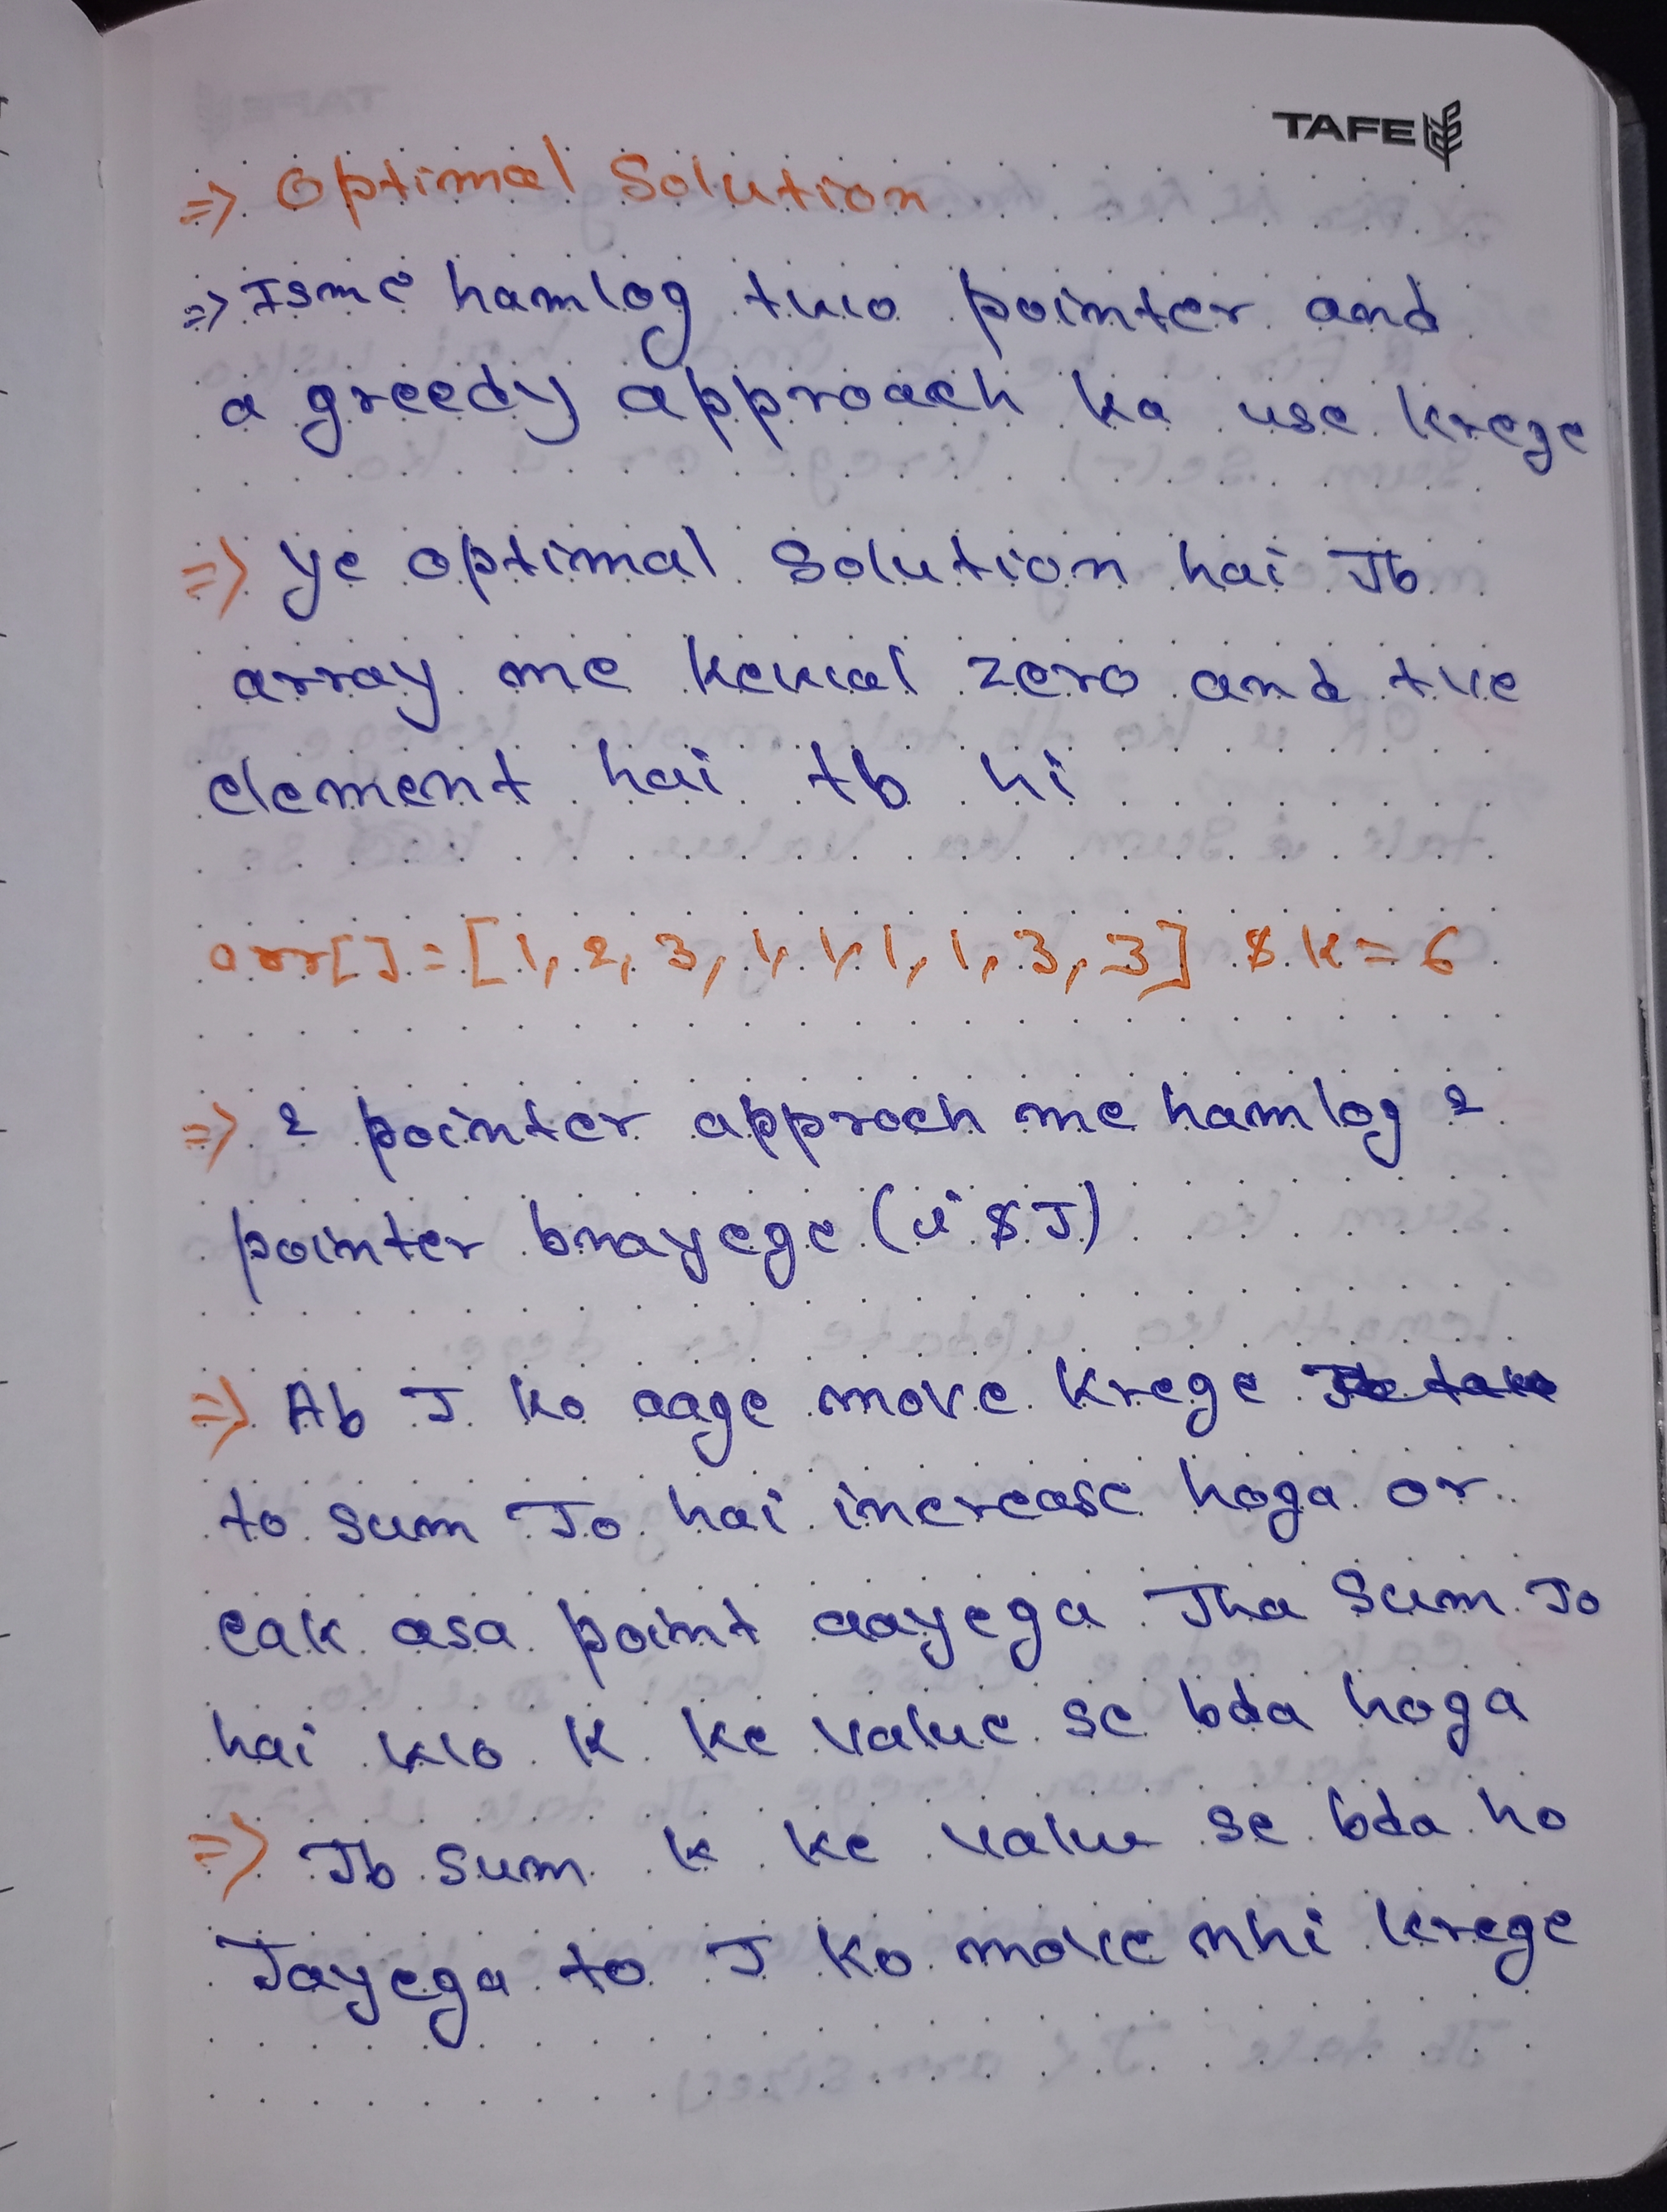 TAFE
=> Optimal Solution
=> Isme hamlog two pointer and
a greedy approach ka use krege
=> ye optimal solution hai Jb
array me keval zero and +ve
element hai tb hi
arr[] = [1, 2, 3, 1, 1, 1, 1, 3, 3] & k = 6
=> 2 pointer approch me hamlog 2
pointer bnayege (i & J)
=> Ab J ko aage move krege
to sum Jo hai increase hoga or
eak asa point aayega Jha Sum Jo
hai wo K ke value se bda hoga
=> Jb sum k ke value se bda ho
Jayega to J ko move nhi krege